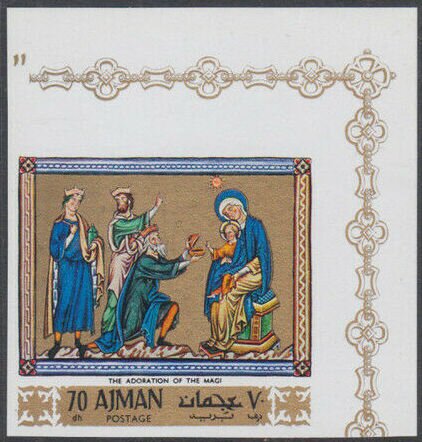 THE ADORATION OF THE MAGI
70 AJMAN عجمان ٧٠
dh POSTAGE بريد درهم